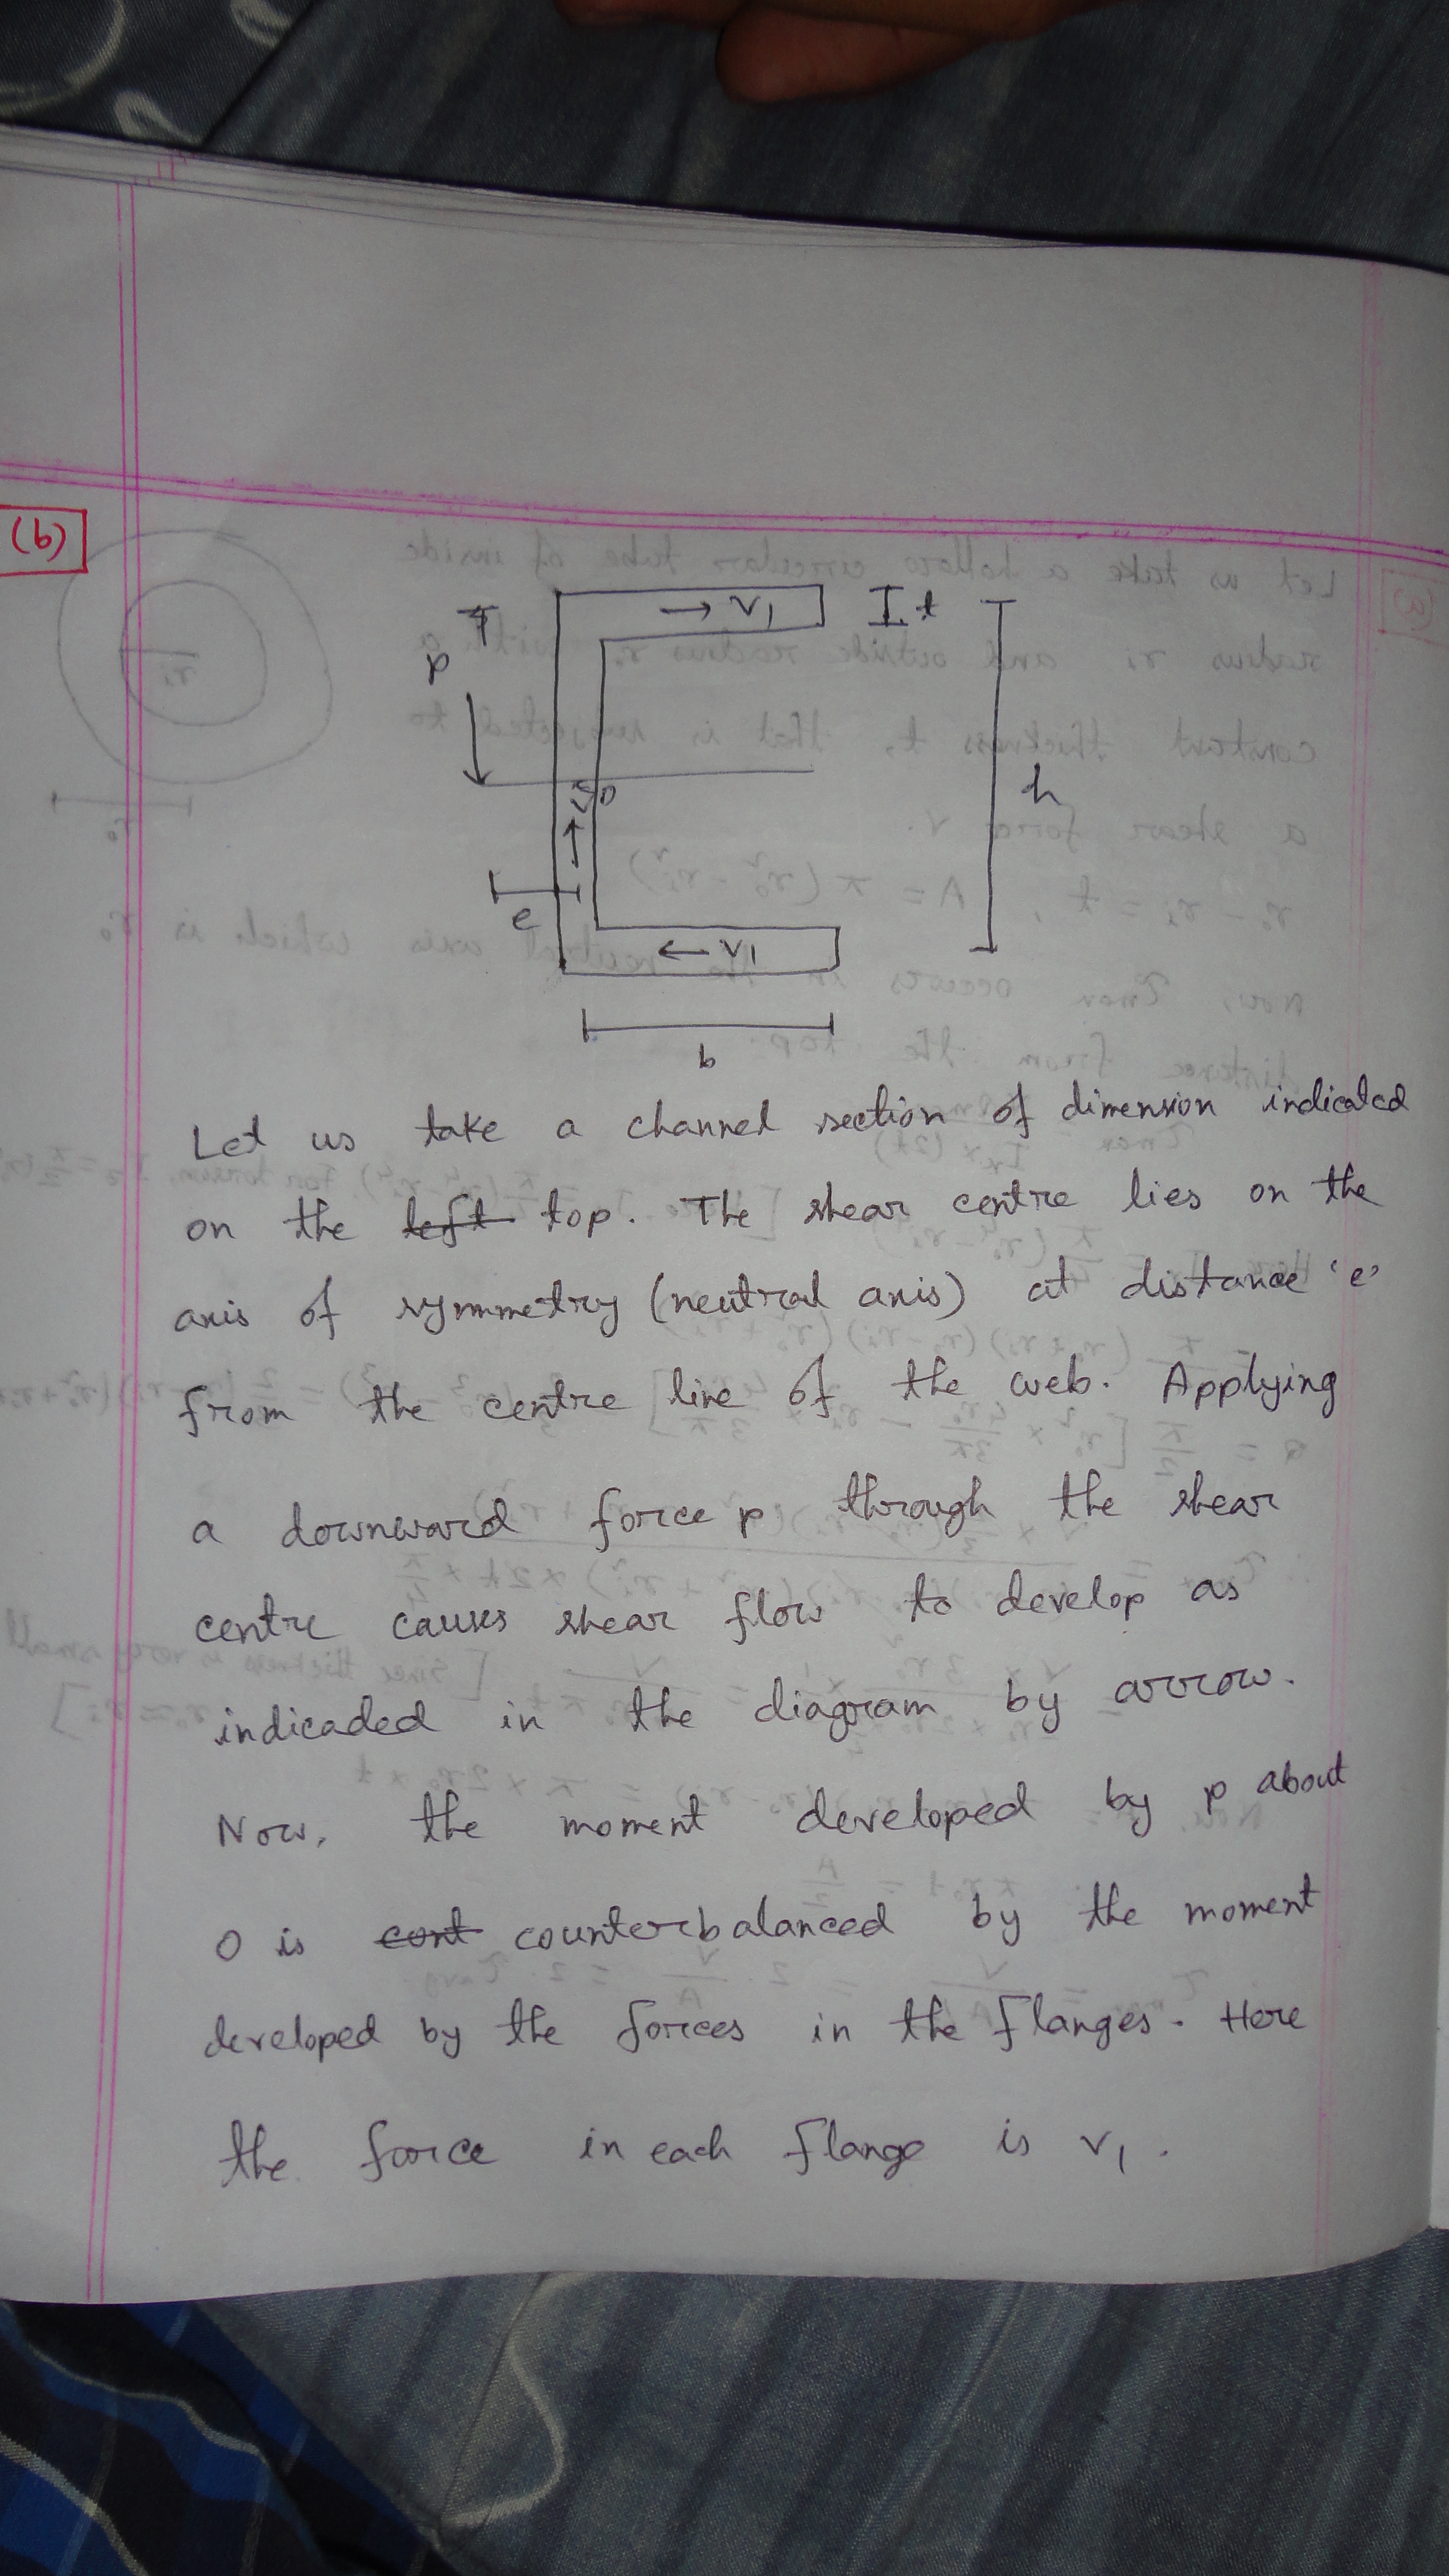 (b)
→ V1
t
P
h
O
e
← V1
b
Let us take a channel section of dimension indicated
on the left top. The shear centre lies on the
axis of symmetry (neutral axis) at distance 'e'
from the centre line of the web. Applying
a downward force p through the shear
centre causes shear flow to develop as
indicaded in the diagram by arrow.
Now, the moment developed by p about
O is cont counterbalanced by the moment
developed by the forces in the flanges. Here
the force in each flange is V1.